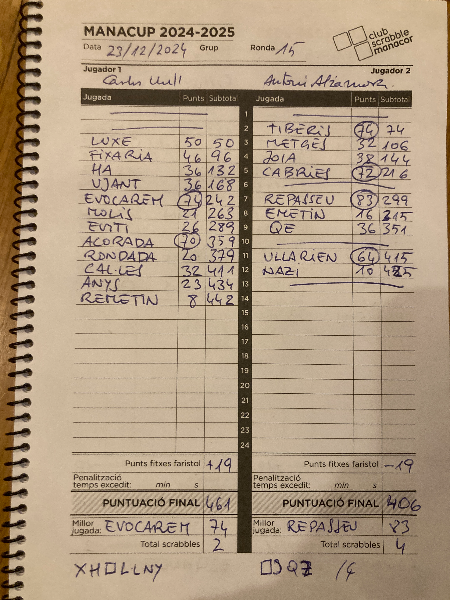 MANACUP 2024-2025
club scrabble manacor
Data 23/12/2024 Grup Ronda 15
Jugador 1 Jugador 2
Carles
Antoni
Jugada Punts Subtotal Jugada Punts Subtotal
1
2 TIBERIS 74 74
LUXE 50 50 3 METGES 32 106
FIXARIA 46 96 4 JOIA 38 144
HA 36 132 5 CABRIES 72 216
UJANT 36 168 6
EVOCAREM 74 242 7 REPASSEU 83 299
MOLIS 21 263 8 EMETIN 16 315
EVITI 26 289 9 QE 36 351
ACORADA 70 359 10
RONDADA 20 379 11 ULLARIEN 64 415
CAL·LES 32 411 12 NAZI 10 425
ANYS 23 434 13
REMETIN 8 442 14
15
16
17
18
19
20
21
22
23
24
Punts fitxes faristol +19 Punts fitxes faristol -19
Penalització temps excedit: min s Penalització temps excedit: min s
PUNTUACIÓ FINAL 461 PUNTUACIÓ FINAL 406
Millor jugada: EVOCAREM 74 Millor jugada: REPASSEU 83
Total scrabbles 2 Total scrabbles 4